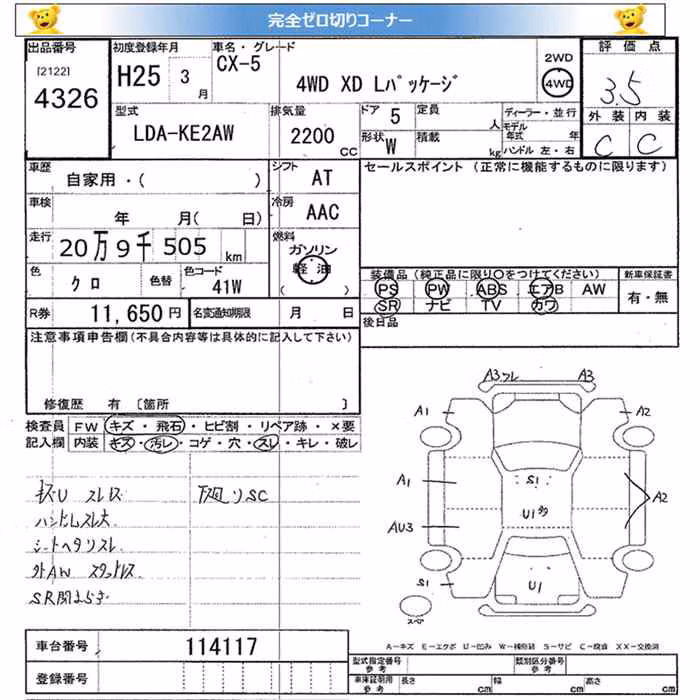 完全ゼロ切りコーナー
出品番号 [2122] 4326
初度登録年月 H25 3月
車名・グレード CX-5 4WD XD Lパッケージ
2WD 4WD
評価点 3.5
外装 C 内装 C
型式 LDA-KE2AW
排気量 2200 CC
ドア 5 定員 人
形状 W 積載 kg
ディーラー・並行
モデル年式 年
ハンドル 左・右
車歴 自家用・( )
シフト AT
セールスポイント (正常に機能するものに限ります)
車検 年 月( 日)
冷房 AAC
走行 20万9千505 km
燃料 ガソリン 軽油
色 クロ 色替 色コード 41W
装備品(純正品に限り○をつけてください) 新車保証書
PS PW ABS エアB AW 有・無
SR ナビ TV カワ
R券 11,650円 名変通知期限 月 日
後日品
注意事項申告欄(不具合内容等は具体的に記入して下さい)
修復歴 有 [箇所 ]
検査員記入欄
FW キズ・飛石・ヒビ割・リペア跡・×要
内装 キズ・汚レ・コゲ・穴・スレ・キレ・破レ
キズU スレス
下廻りSC
ハンドルスレ大
シートヘタリスレ
外AW スタッドレス
A3フレ A3
A1 A2
A1 S1 A2
AU3 U1多
S1 U1
スペア
車台番号 114117
A-キズ E-エクボ U-凹み W-補修跡 S-サビ C-腐食 XX-交換済
登録番号
型式指定番号 参考 類別区分番号 参考
車庫証明用 参考 長さ cm 幅 cm 高さ cm